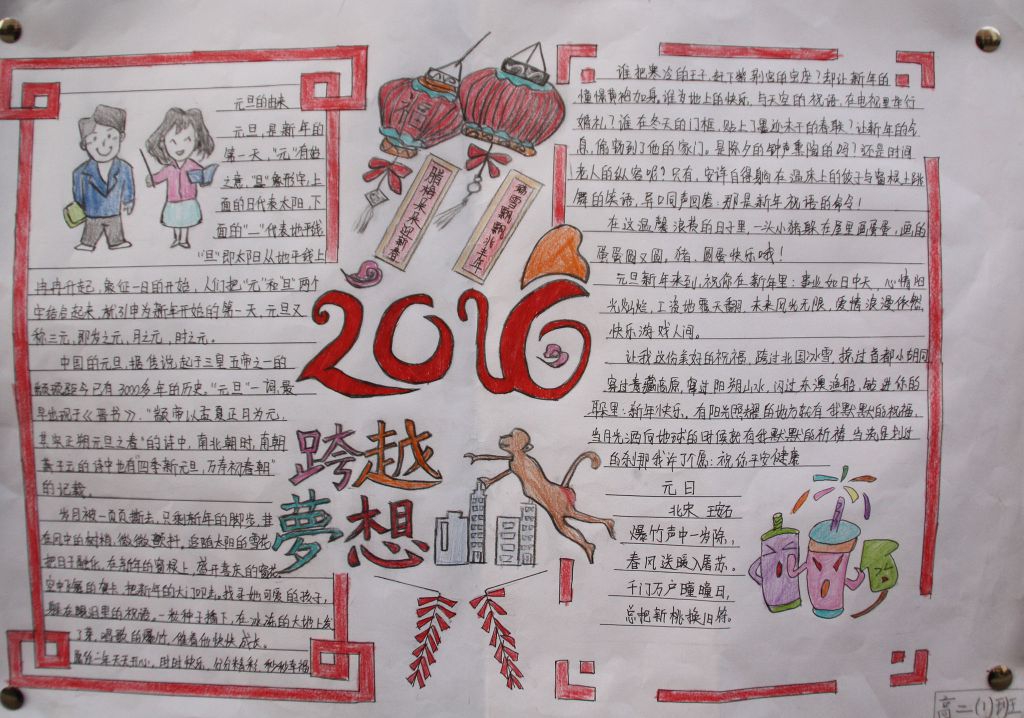 元旦的由来
元旦,是新年的
第一天,"元"有始
之意,"旦"象形字,上
面的日代表太阳,下
面的"一"代表地平线
"旦"即太阳从地平线上
冉冉升起,象征一日的开始,人们把"元"和"旦"两个
字结合起来,就引申为新年开始的第一天,元旦又
称三元,即岁之元,月之元,时之元。
中国的元旦,据传说起于三皇五帝之一的
颛顼距今已有3000多年的历史。"元旦"一词最
早出现于《晋书》,"颛帝以孟夏正月为元,
其实正朔元旦之春"的诗中,南北朝时,南朝
萧子云的诗中也有"四季新元旦,万寿初春朝"
的记载。
岁月被一页页撕去,只剩新年的脚步,
在风中的树梢,微微颤抖,追随太阳的雪花,
把日子融化,在新年的窗棂上,盛开喜乐的窗花。
把新年的大门叩击,我寻她可爱的孩子,
躲在眼泪里的祝福,一粒种子播下,在冰冻的大地上发
了芽,唱歌的爆竹,催着他快快成长。
天天开心,时时快乐,分分精彩,秒秒幸福
福
腊梅朵朵迎新春
瑞雪飘飘兆丰年
2016
跨越
夢想
谁把寒冷的王子,赶下鳞别宫的宝座?却让新年的
憧憬黄袍加身,谁为地上的快乐,与天空的祝福,在电视里举行
婚礼?谁在冬天的门框,贴上了墨迹未干的春联?让新年的气
息,偷偷到了他的家门。是除夕的钟声熏陶的吗?还是时间
老人的纵容呢?只有,安详自得躺在温床上的饺子与窗棂上跳
舞的笑语,异口同声回答,那是新年祝福的命令!
在这温馨浪漫的日子里,一头小猪躲在屋里画蛋蛋,画的
蛋蛋圆又圆,猪,圆蛋快乐哦!
元旦新年来到,祝你在新年里:事业如日中天,心情阳
光灿烂,工资地覆天翻,未来风光无限,爱情浪漫依然,
快乐游戏人间。
让我这份美好的祝福,跨过北国冰雪,掠过首都小胡同
穿过青藏高原,穿过阳朔山水,闪过东澳渔船,钻进你的
耳朵里:新年快乐,有阳光照耀的地方就有我默默的祝福,
当月光洒向地球的时候就有我默默的祈祷,当流星划过
的刹那我许了个愿:祝你平安健康
元日
北宋 王安石
爆竹声中一岁除,
春风送暖入屠苏。
千门万户曈曈日,
总把新桃换旧符。
高二(1)班